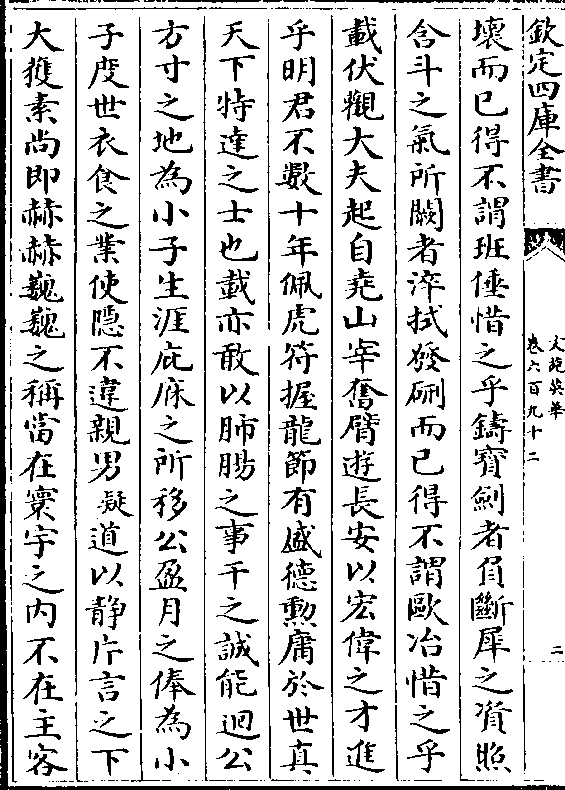 欽定四庫全書
文苑英華
卷六百九十二
二
壞而已得不謂班倕惜之乎鑄寶劍者負斷犀之資照
含斗之氣所闕者淬拭發硎而已得不謂歐冶惜之乎
載伏觀大夫起自堯山宰奮臂遊長安以宏偉之才進
乎明君不數十年佩虎符握龍節有盛德勲庸於世真
天下特達之士也載亦敢以肺腸之事干之誠能迴公
方寸之地為小子生涯庇庥之所移公盈月之俸為小
子度世衣食之業使隱不違親男凝道以靜片言之下
大獲素尚即赫赫巍巍之稱當在寰宇之内不在主客